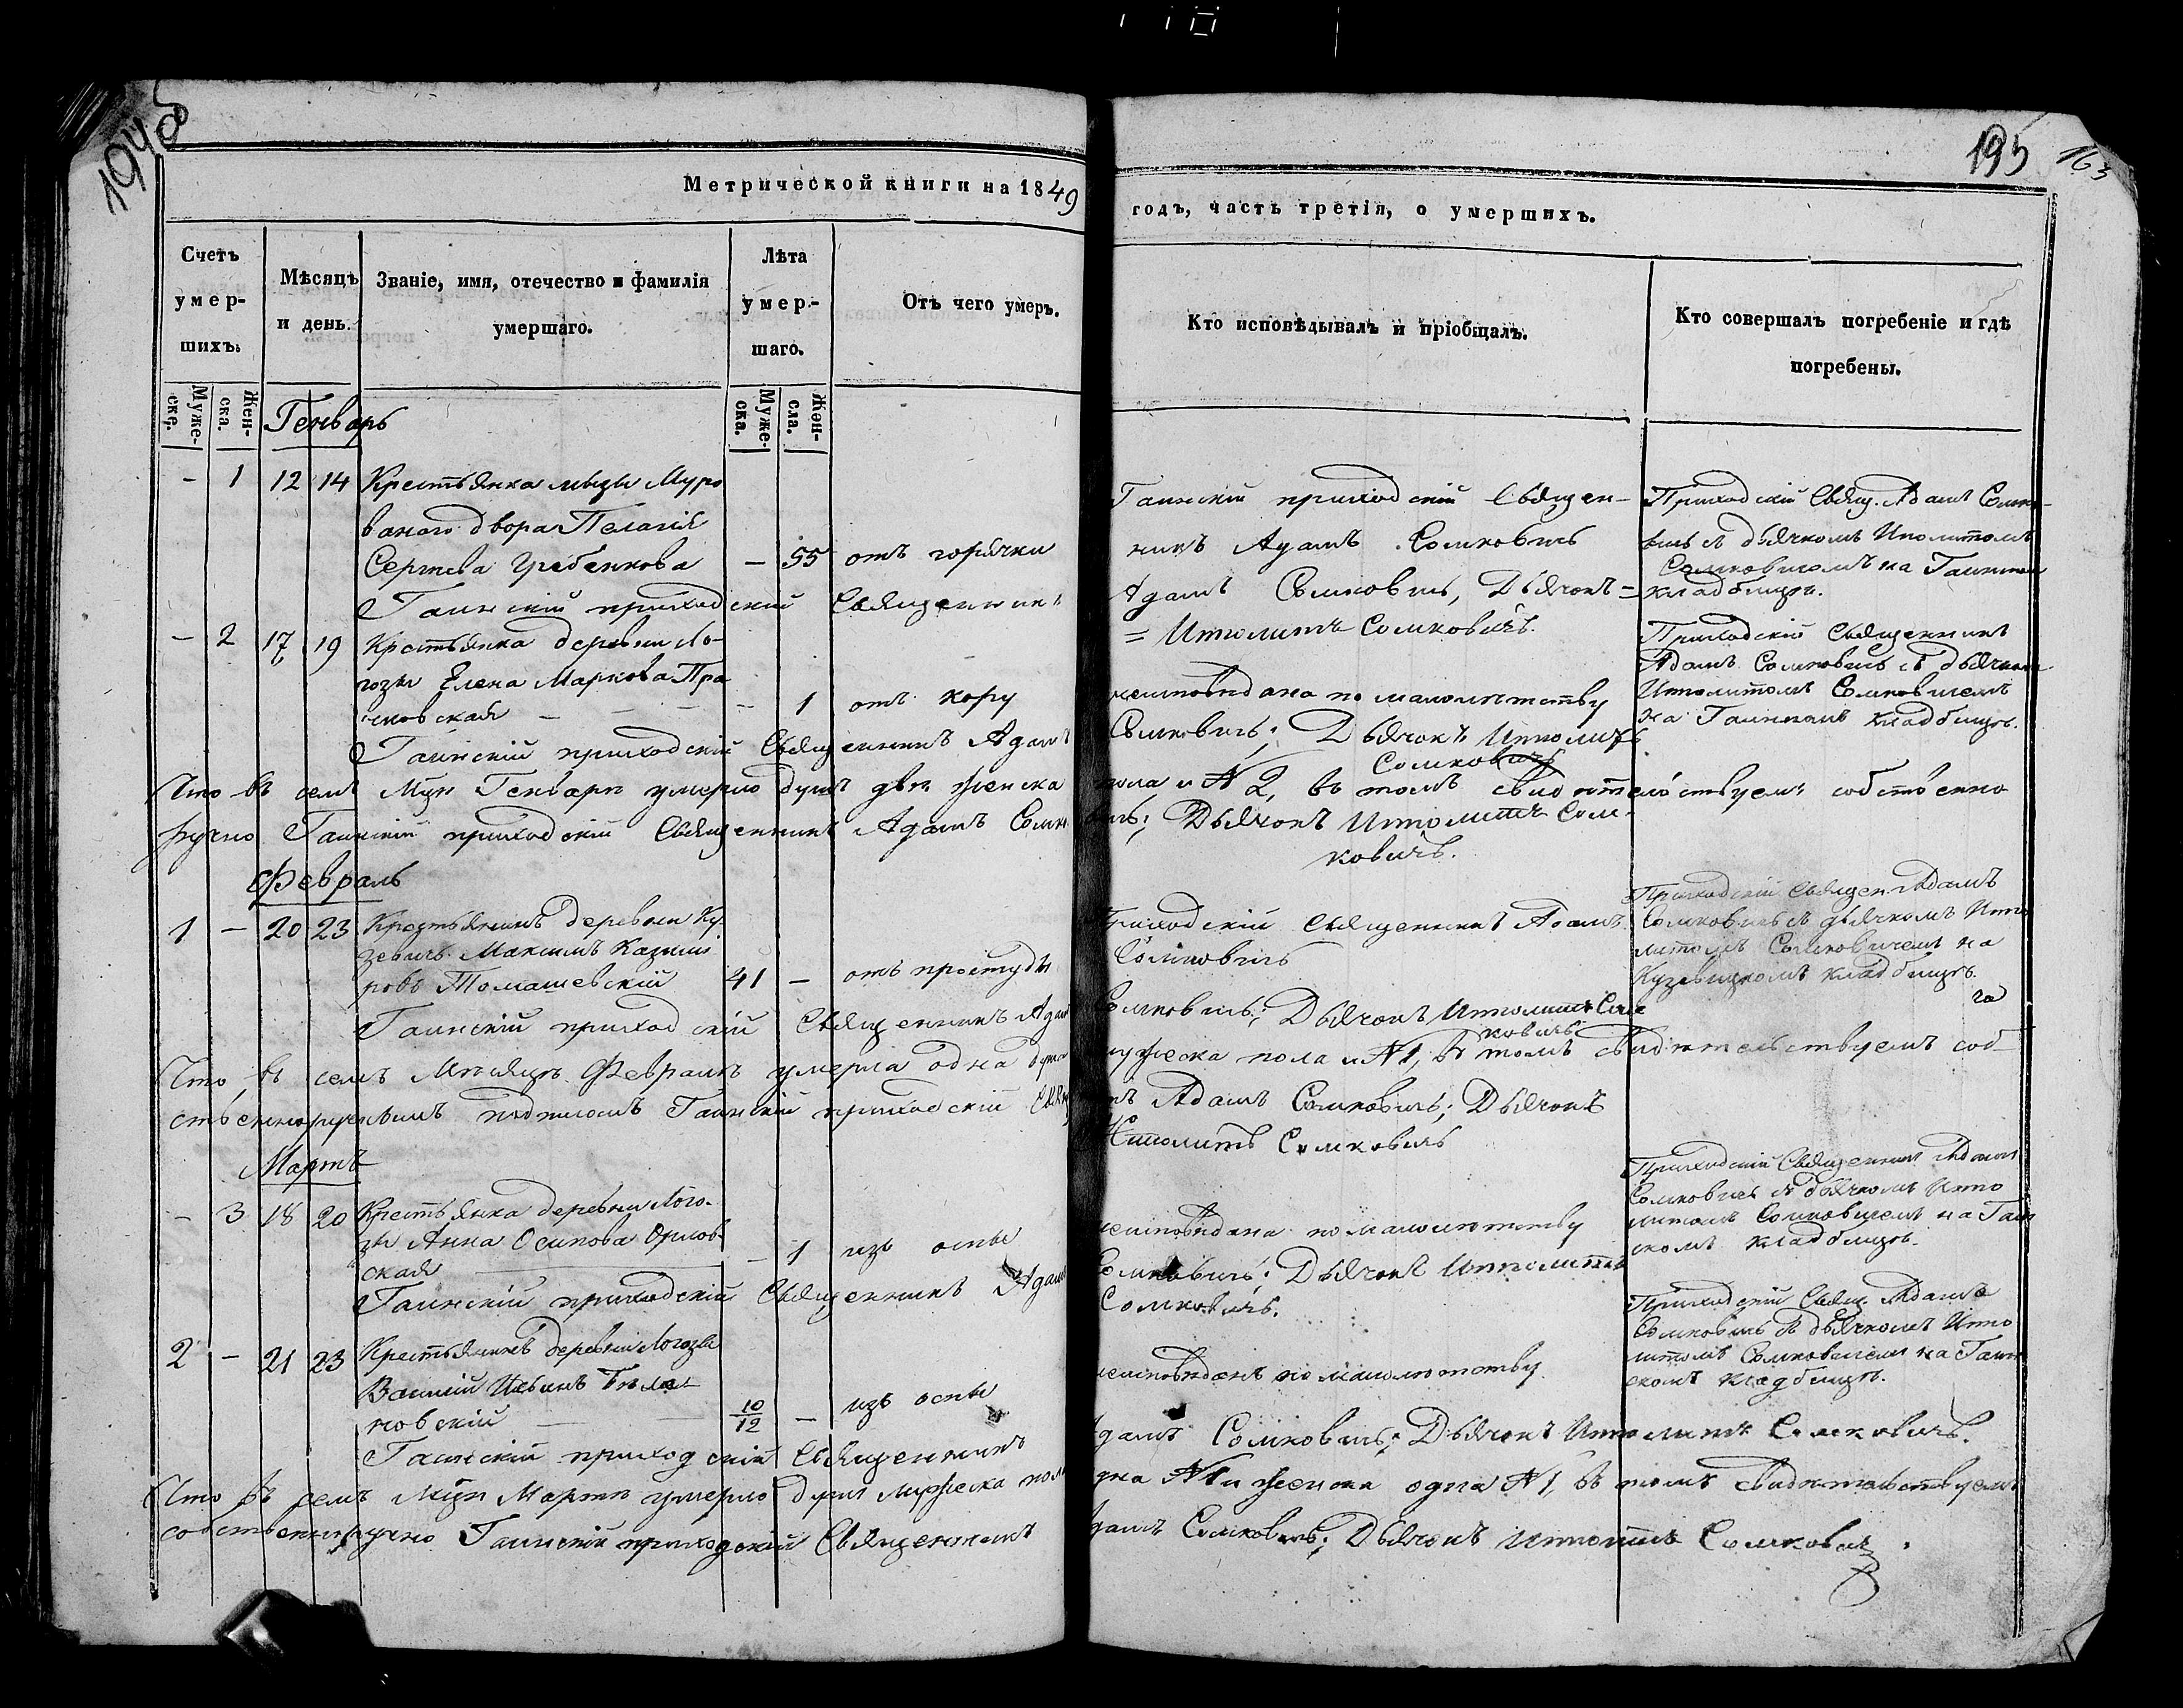 194 об
195
163
Метрической книги на 1849
годъ, часть третія, о умершихъ.
Счетъ умер-шихъ.
Мѣсяцъ и день.
Званіе, имя, отечество и фамилія умершаго.
Лѣта умер-шаго.
Отъ чего умеръ.
Кто исповѣдывалъ и пріобщалъ.
Кто совершалъ погребеніе и гдѣ погребены.
Муже-ске.
Жен-ска.
Муже-ска.
Жен-сла.
Генварь
- 1 12 14 Крестьянка мызы Муро
ванаго двора Пелагія
Сергѣева Гребенкова — 55 отъ горячки
Гаинскій приходскій Священ-
никъ Адамъ Сомковичь
Приходскій Свящ. Адамъ Сомко-
вичь съ дьячкомъ Иполитомъ
Сомковичомъ на Гаинском
кладбищѣ.
Гаинскій приходскій Священникъ Адамъ Сомковичь, Дьячокъ =
= Ипполитъ Сомковичь.
- 2 17 19 Крстьянка деревни Ло-
гозы Елена Маркова Пра
чковская — 1 отъ кору
неисповѣдана по малолѣтству
Приходскій Священникъ
Адамъ Сомковичь съ дьячком
Ипполитомъ Сомковичемъ
на Гаинскомъ кладбищѣ.
Гаинскій приходскій Священникъ Адамъ Сомковичь; Дьячокъ Ипполитъ
Сомковичь
Что въ семъ Мцѣ Генварѣ умерло душъ двѣ женска пола и № 2, въ томъ свидѣтельствуемъ собственно
ручно Гаинскій приходскій Священникъ Адамъ Сомковичь; Дьячокъ Ипполитъ Сом-
ковичь.
Февраль
1 - 20 23 Крестьянинъ деревни Ку
зевичь Максимъ Казимі
ровъ Томашевскій 41 — отъ простуды
Приходскій священникъ Адамъ
Сомковичь
Приходскій Священ. Адамъ
Сомковичь съ дьячкомъ Иппо
литомъ Сомковичемъ на
Кузевицкомъ кладбищѣ.
Гаинскій приходскій Священникъ Адамъ Сомковичь; Дьячокъ Ипполитъ Сом
ковичь
Что въ семъ Мѣсяцѣ Февралѣ умерла одна душа мужеска пола и № 1, въ томъ свидѣтельствуемъ соб-
ственноручнымъ подписомъ Гаинскій приходскій Свящ Адамъ Сомковичь; Дьячокъ
Ипполитъ Сомковичь
Мартъ
- 3 18 20 Крестьянка деревни Лого-
зы Анна Осипова Орлов-
ская — 1 изъ оспы
неисповѣдана по малолѣтству
Приходскій Священникъ Адамъ
Сомковичь съ дьячкомъ Иппо
литомъ Сомковичемъ на Гаин
скомъ кладбищѣ.
Гаинскій приходскій Священникъ Адамъ Сомковичь; Дьячокъ Ипполитъ
Сомковичь.
2 - 21 23 Крестьянинъ деревни Логозы
Василій Ивановъ
новскій 10/12 — изъ оспы
неисповѣданъ по малолѣтству
Приходскій Свящ. Адамъ
Сомковичь съ дьячкомъ Иппо
литомъ Сомковичемъ на Гаин
скомъ кладбищѣ.
Гаинскій приходскій Священникъ Адамъ Сомковичь; Дьячокъ Ипполитъ Сомковичь.
Что въ семъ Мцѣ Мартѣ умерло душъ мужеска пола одна № 1 и женска одна № 1, въ томъ свидѣтельствуемъ
собственноручно Гаинскій приходскій Священникъ Адамъ Сомковичь; Дьячокъ Ипполитъ Сомковичь.